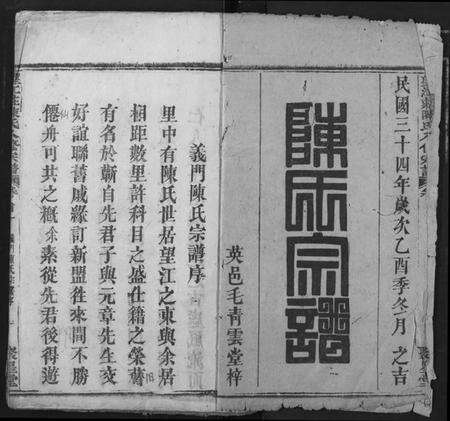 民國三十四年歲次乙酉季冬月 之吉
陳氏宗譜
英邑毛青雲堂梓
義門陳氏宗譜序
里中有陳氏世居望江之東與余居
相距數里許科目之盛仕籍之榮舊
有名於蘄自先君子與元章先生交
好誼聯舊戚緣訂新盟徃來間不勝
僊舟可共之槪余素從先君後得遊
聚星堂